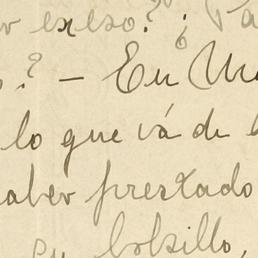 exeso? ¿Pa
? – En Ma
lo que vá de
aber prestado
en bolsillo,